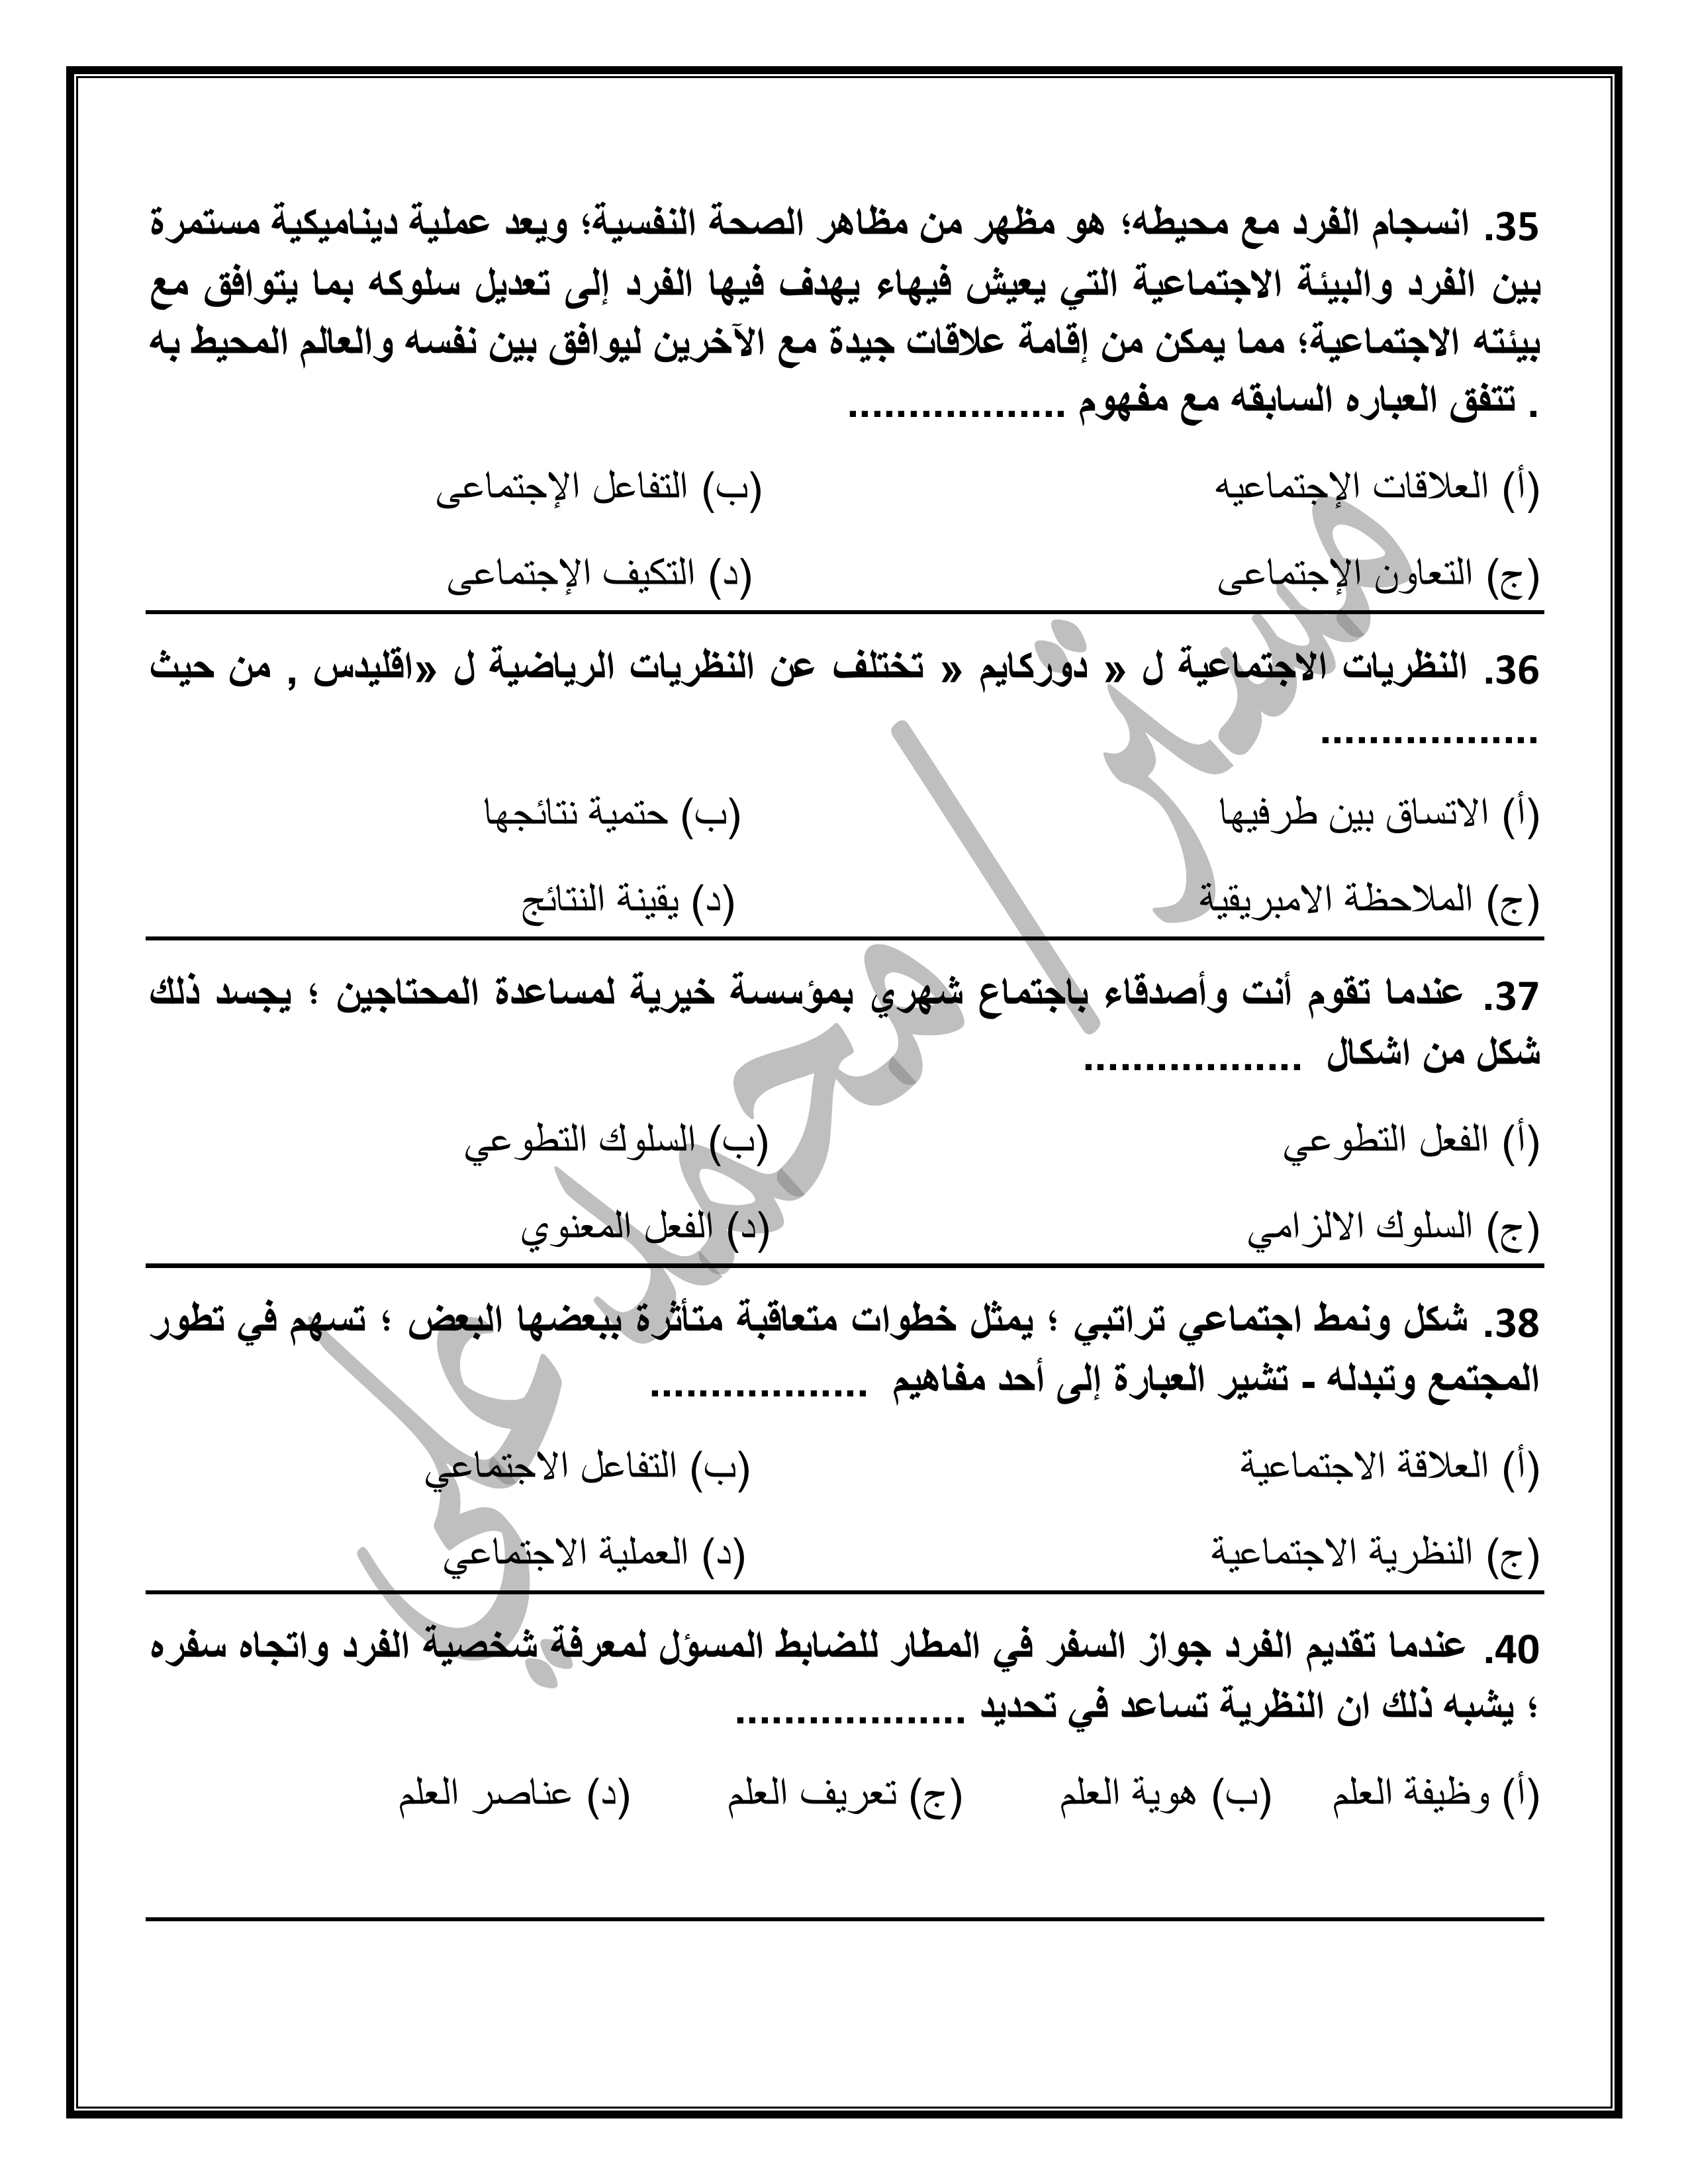 35. انسجام الفرد مع محيطه؛ هو مظهر من مظاهر الصحة النفسية؛ ويعد عملية ديناميكية مستمرة
بين الفرد والبيئة الاجتماعية التي يعيش فيهاء يهدف فيها الفرد إلى تعديل سلوكه بما يتوافق مع
بيئته الاجتماعية؛ مما يمكن من إقامة علاقات جيدة مع الآخرين ليوافق بين نفسه والعالم المحيط به
. تتفق العباره السابقه مع مفهوم ..................
(أ) العلاقات الإجتماعيه (ب) التفاعل الإجتماعى
(ج) التعاون الإجتماعى (د) التكيف الإجتماعى
36. النظريات الاجتماعية ل « دوركايم « تختلف عن النظريات الرياضية ل «اقليدس , من حيث
..................
(أ) الاتساق بين طرفيها (ب) حتمية نتائجها
(ج) الملاحظة الامبريقية (د) يقينة النتائج
37. عندما تقوم أنت وأصدقاء باجتماع شهري بمؤسسة خيرية لمساعدة المحتاجين ؛ يجسد ذلك
شكل من اشكال ..................
(أ) الفعل التطوعي (ب) السلوك التطوعي
(ج) السلوك الالزامي (د) الفعل المعنوي
38. شكل ونمط اجتماعي تراتبي ؛ يمثل خطوات متعاقبة متأثرة ببعضها البعض ؛ تسهم في تطور
المجتمع وتبدله - تشير العبارة إلى أحد مفاهيم ..................
(أ) العلاقة الاجتماعية (ب) التفاعل الاجتماعي
(ج) النظرية الاجتماعية (د) العملية الاجتماعي
40. عندما تقديم الفرد جواز السفر في المطار للضابط المسؤل لمعرفة شخصية الفرد واتجاه سفره
؛ يشبه ذلك ان النظرية تساعد في تحديد ...................
(أ) وظيفة العلم (ب) هوية العلم (ج) تعريف العلم (د) عناصر العلم
مستر / محمد علي